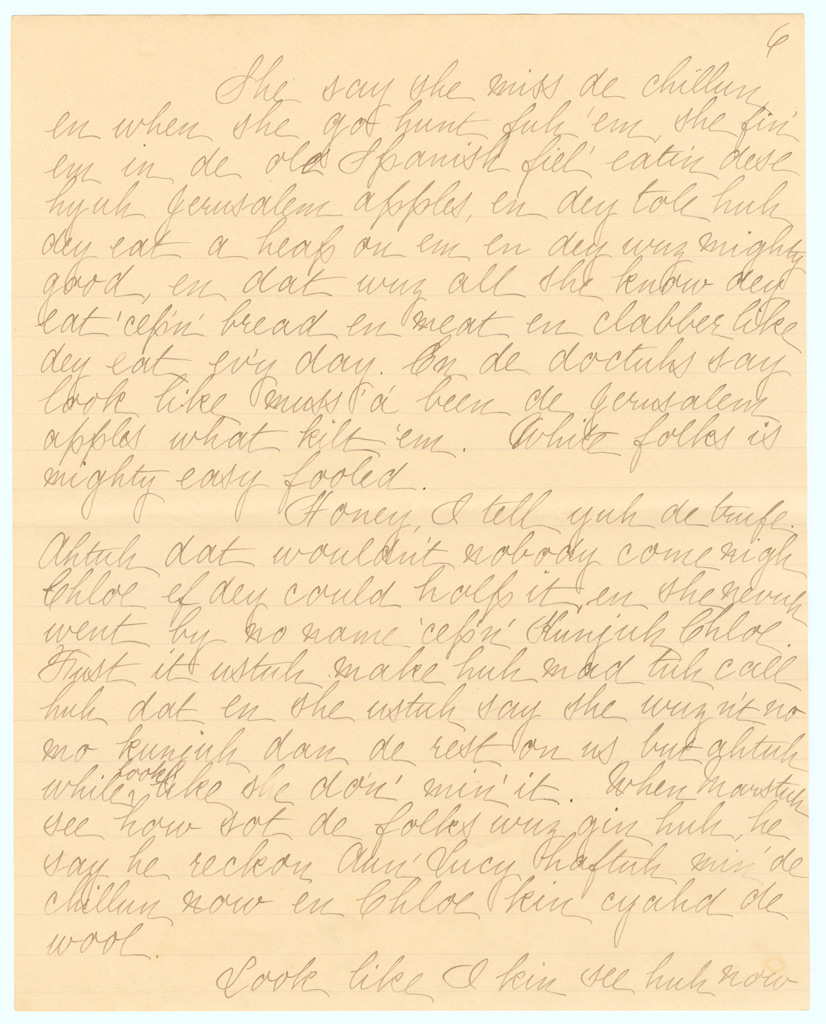 6
She say she miss de chillun
en when she go hunt fuh 'em, she fin'
em in de ole Spanish fiel' eatin dese
hyuh Jerusalem apples, en dey tole huh
dey eat a heap on em en dey wuz mighty
good, en dat wuz all she know dey
eat 'cep'n' bread en meat en clabber like
dey eat ev'y day. En de doctuhs say
look like muss 'a been de Jerusalem
apples what kilt 'em. White folks is
mighty easy fooled.
Honey, I tell yuh de trufe.
Ahtuh dat wouldn't nobody come nigh
Chloe ef dey could holp it, en she nevuh
went by no name 'cep'n' Kunjuh Chloe.
Fust it ustuh make huh mad tuh call
huh dat en she ustuh say she wuzn't no
mo kunjuh dan de rest on us but ahtuh
while looks like she don' min' it. When Marstuh
see how sot de folks wuz gin huh, he
say he reckon Aun' Lucy haftuh min' de
chillun now en Chloe kin cyahd de
wool.
Look like I kin see huh now